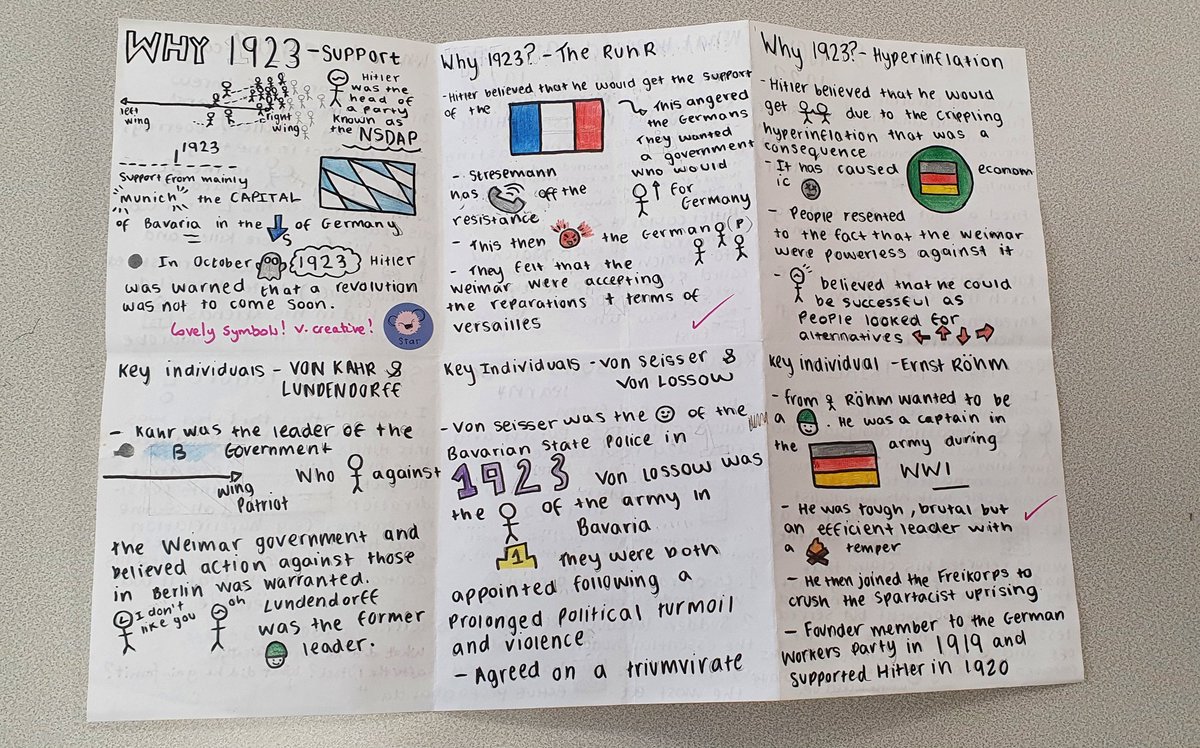 WHY 1923 - Support
Hitler
was the
head of
a party
known as
the NSDAP
left
wing
right
wing
1923
Support from mainly
Munich the CAPITAL
of Bavaria in the S of Germany
In October 1923 Hitler
was warned that a revolution
was not to come soon.
Lovely symbols! v. creative!
Star
Key individuals - VON KAHR &
LUNDENDORFF
- Kahr was the leader of the
B Government
wing
Patriot
Who against
the Weimar government and
believed action against those
in Berlin was warranted.
L I don't
like you
oh
Lundendorff
was the former
leader.
Why 1923? - The RuhR
- Hitler believed that he would get the support
of the
This angered
the Germans
They wanted
a government
who would
for
Germany
- Stresemann
has off the
resistance
- This then the German (P)
- They felt that the
weimar were accepting
the reparations + terms of
versailles
Key Individuals - von seisser &
Von Lossow
- Von seisser was the of the
Bavarian State Police in
1923 Von Lossow was
the of the army in
Bavaria
1 They were both
appointed following a
prolonged political turmoil
and violence
- Agreed on a triumvirate
Why 1923? - Hyperinflation
- Hitler believed that he would
get due to the crippling
hyperinflation that was a
consequence
- It has caused econom
ic
- People resented
to the fact that the weimar
were powerless against it
- believed that he could
be successful as
People looked for
alternatives
Key individual - Ernst Röhm
- from Röhm wanted to be
a . He was a captain in
the army during
WWI
- He was tough, brutal but
an efficient leader with
a temper
- He then joined the Freikorps to
crush the Spartacist uprising
- Founder member to the German
Workers Party in 1919 and
supported Hitler in 1920